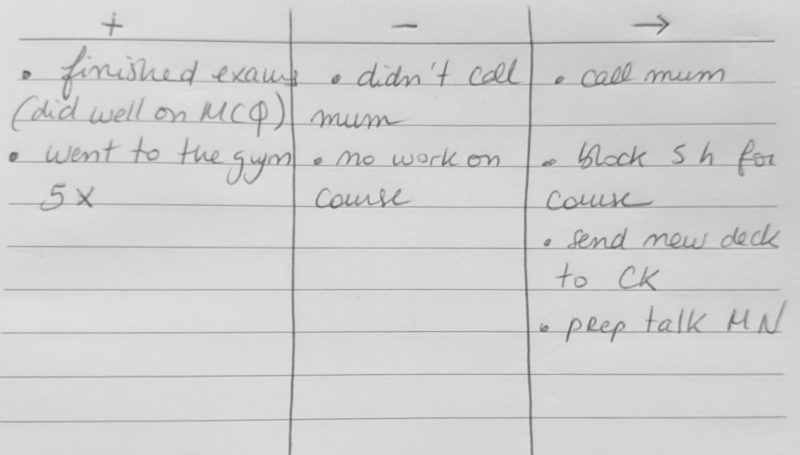 +
• finished exams
(did well on MCQ)
• went to the gym
5x
−
• didn't call
mum
• no work on
course
→
• call mum
• block 5 h for
course
• send new deck
to CK
• prep talk MN